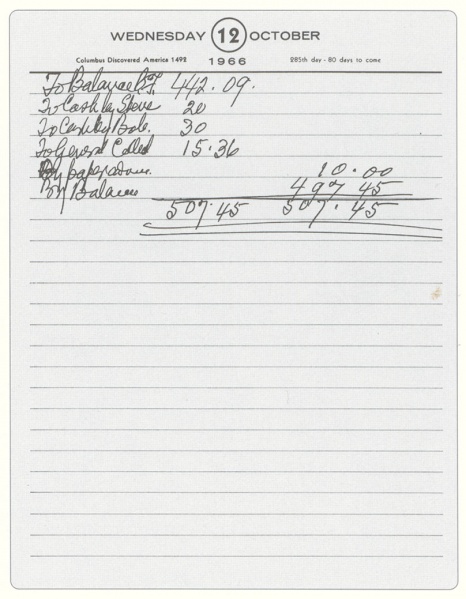 WEDNESDAY 12 OCTOBER
Columbus Discovered America 1492 1966 285th day - 80 days to come
To Balance B.F. 442.09.
To Cash by Steve 20
To Cash by Bob. 30
To General Colled 15.36
By 10.00
By Balance 497 45
507.45 507.45